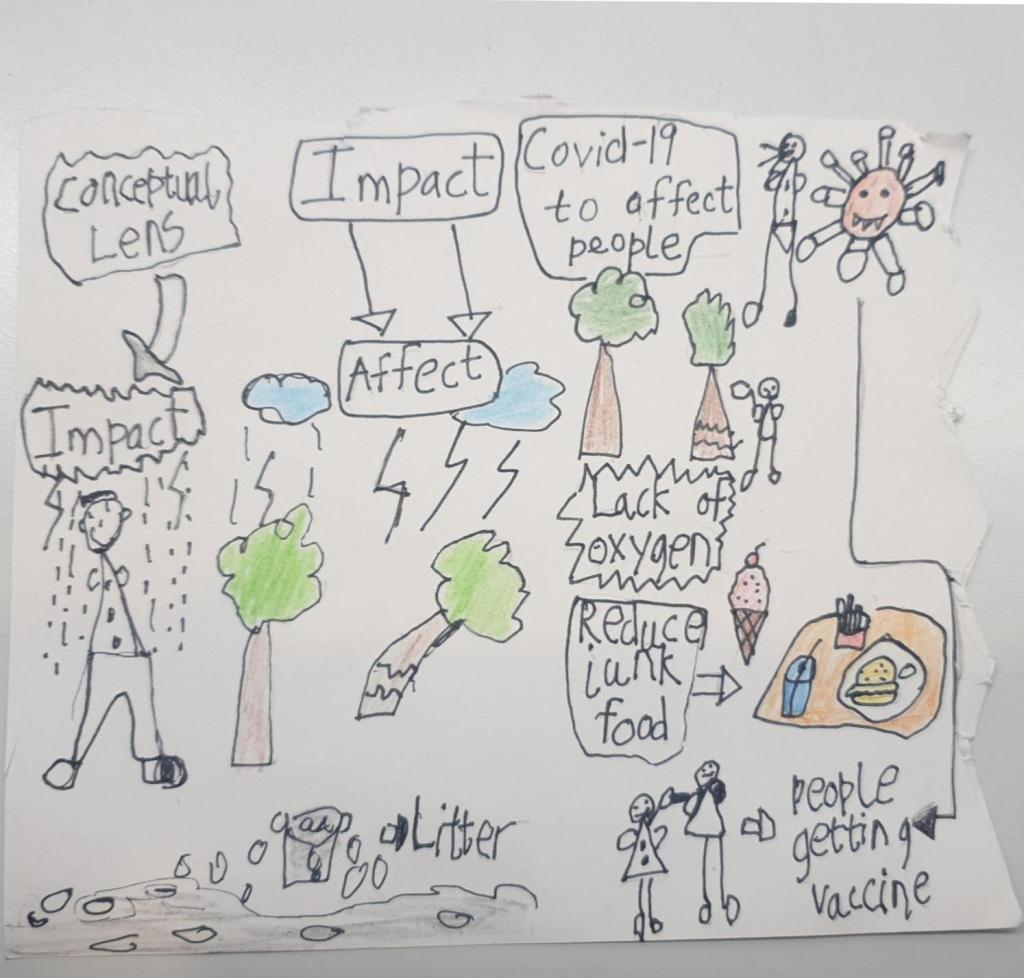 Conceptual
Lens
Impact
Impact
Affect
Covid-19
to affect
people
Lack of
oxygen
Reduce
junk
food
Litter
people
getting
vaccine